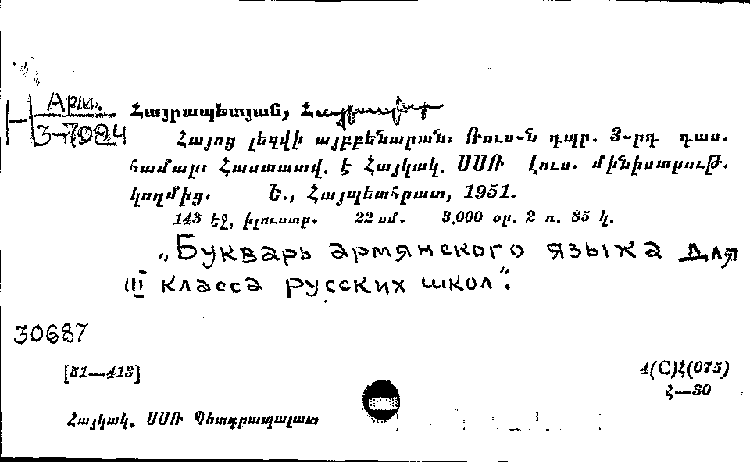 Арм.
3-7084
Հայրապետյան, Հայկանուշ
Հայոց լեզվի այբբենարան։ Ռուս-ն դպր. 3-րդ դաս.
համար։ Հաստատվ. է Հայկակ. ՍՍՌ Լուս. մինիստրութ.
կողմից. Ե., Հայպետհրատ, 1951.
143 էջ, իլյուստր. 22 սմ. 3,000 օր. 2 ռ. 85 կ.
„Букварь армянского языка для
III класса русских школ".
30687
[51—413]
4(С)Հ(075)
Հ—30
Հայկակ. ՍՍՌ Պետգրապալատ